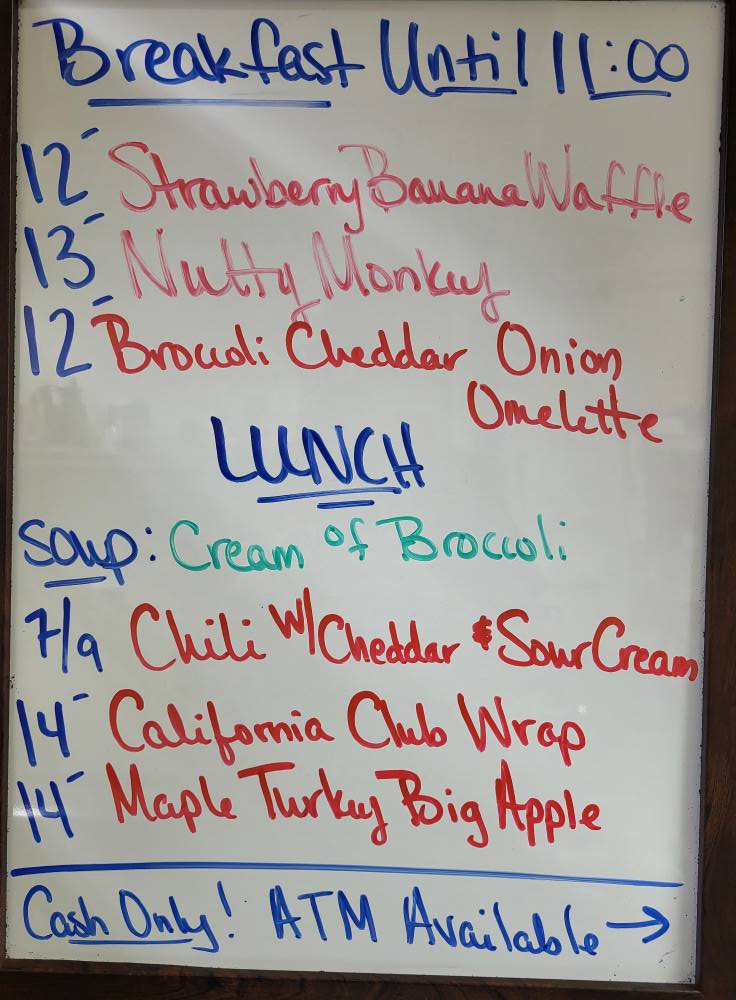 Breakfast Until 11:00
12- Strawberry Banana Waffle
13- Nutty Monkey
12- Broccoli Cheddar Onion
Omelette
LUNCH
Soup: Cream of Broccoli
7/9 Chili w/Cheddar & Sour Cream
14- California Club Wrap
14- Maple Turkey Big Apple
Cash Only! ATM Available →